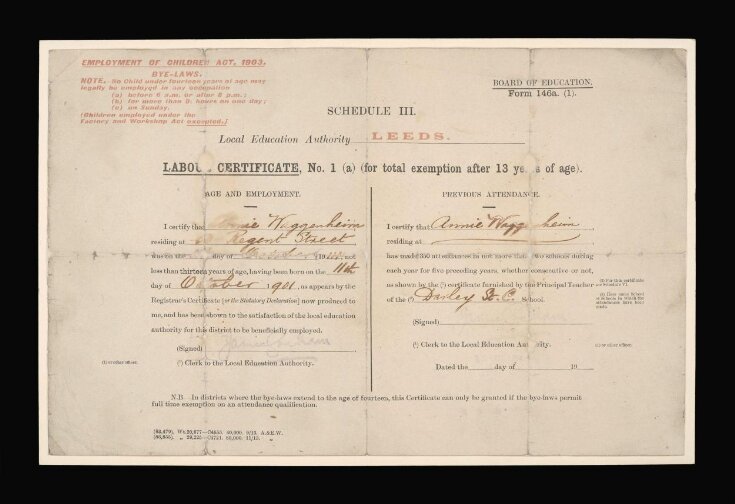 EMPLOYMENT OF CHILDREN ACT, 1903.
BYE-LAWS.
NOTE.—No Child under fourteen years of age may
legally be employed in any occupation
(a) before 6 a.m. or after 8 p.m.;
(b) for more than hours on one day;
(c) on Sunday.
[Children employed under the
Factory and Workshop Act excepted.]
BOARD OF EDUCATION.
Form 146a. (1).
SCHEDULE III.
Local Education Authority LEEDS.
LABOUR CERTIFICATE, No. 1 (a) (for total exemption after 13 years of age).
AGE AND EMPLOYMENT.
I certify that Annie Waggenheim
residing at Regent Street
was on the day of 19 not
less than thirteen years of age, having been born on the 11th
day of October 1901, as appears by the
Registrar's Certificate [or the Statutory Declaration] now produced to
me, and has been shown to the satisfaction of the local education
authority for this district to be beneficially employed.
(Signed)
(¹) or other officer.
(¹) Clerk to the Local Education Authority.
PREVIOUS ATTENDANCE.
I certify that Annie Waggenheim
residing at
has made 350 attendances in not more than two schools during
each year for five preceding years, whether consecutive or not,
as shown by the (¹) certificate furnished by the Principal Teacher
of the (²) Darley St. C. School.
(Signed)
(³) Clerk to the Local Education Authority.
Dated the day of 19
(¹) For this certificate
see Schedule V.
(²) Here name School
or Schools in which the
attendances have been
made.
(³) or other officer.
N.B. In districts where the bye-laws extend to the age of fourteen, this Certificate can only be granted if the bye-laws permit
full time exemption on an attendance qualification.